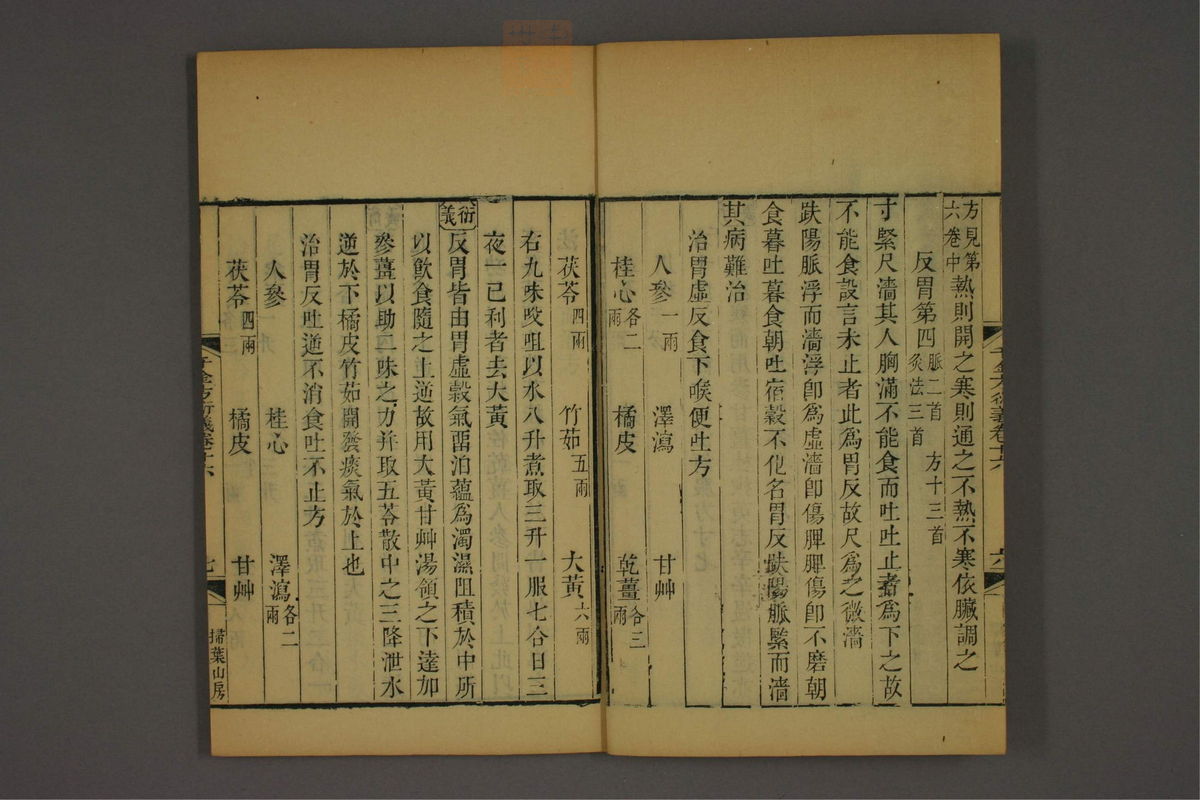 方見第六卷中熱則開之寒則通之不熱不寒依臟調之
反胃第四脈二首 方十三首 灸法三首
寸緊尺濇其人胸滿不能食而吐吐止者爲下之故
不能食設言未止者此爲胃反故尺爲之微濇
趺陽脈浮而濇浮卽爲虛濇卽傷脾脾傷卽不磨朝
食暮吐暮食朝吐宿穀不化名胃反趺陽脈緊而濇
其病難治
治胃虛反食下喉便吐方
人參一兩 澤瀉 甘艸
桂心各二兩 橘皮 乾薑各三兩
茯苓四兩 竹茹五兩 大黃六兩
右九味㕮咀以水八升煮取三升一服七合日三
夜一已利者去大黃
衍義
反胃皆由胃虛穀氣畱泊蘊爲濁濕阻積於中所
以飲食隨之上逆故用大黃甘艸湯領之下達加
參薑以助二味之力幷取五苓散中之三降泄水
逆於下橘皮竹茹開發痰氣於上也
治胃反吐逆不消食吐不止方
人參 桂心 澤瀉各二兩
茯苓四兩 橘皮 甘艸
千金方衍義卷十六
六
七
掃葉山房